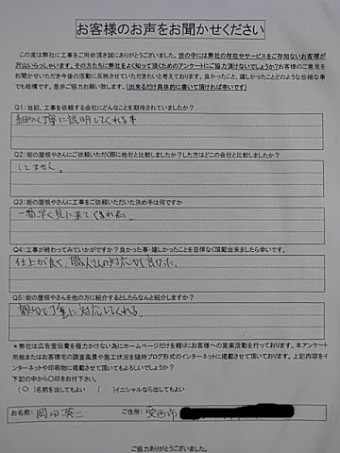 お客様のお声をお聞かせください
この度は弊社に工事をご用命頂き誠にありがとうございました。世の中には弊社の存在やサービスをご存知ないお客様が
沢山いらっしゃいます。その方たちに弊社をよく知って頂くためのアンケートにご協力頂けないでしょうか?お客様のご意見を
お聞かせいただき今後の活動に反映させていただきたいと考えております。良かったこと、嬉しかったことどのような些細な事
でも結構です。是非ご協力お願い致します。(出来るだけ具体的に書いて頂ければ幸いです)
Q1:当初、工事を依頼する会社にどんなことを期待されていましたか?
細かく丁寧に説明してくれる事
Q2:街の屋根やさんにご依頼いただく際に他社と比較しましたか?した方はどこの会社と比較しましたか?
してません。
Q3:街の屋根やさんに工事をご依頼いただいた決め手は何ですか
一番早く見に来てくれた。
Q4:工事が終わってみていかがですか?良かった事・嬉しかったことを忌憚なく頂戴出来ましたら幸いです。
仕上が良く、職人さんの対応が良かった。
Q5:街の屋根やさんを他の方に紹介するとしたらなんと紹介しますか?
親切で丁寧に対応してくれる。
*弊社は広告宣伝費を極力かけない為にホームページだけを頼りにお客様への営業活動を行っております。本アンケート
用紙またはお客様宅の調査風景や施工状況を随時ブログ形式のインターネットに掲載させて頂いております。上記内容をイ
ンターネットや印刷物に掲載させて頂いてもよろしいでしょうか?
下記の中から〇印をお付け下さい。
(〇)名前を出してもよい ( )イニシャルなら出してもよい
お名前: 岡田 英二 ご住所: 安西市
ご協力ありがとうございました。